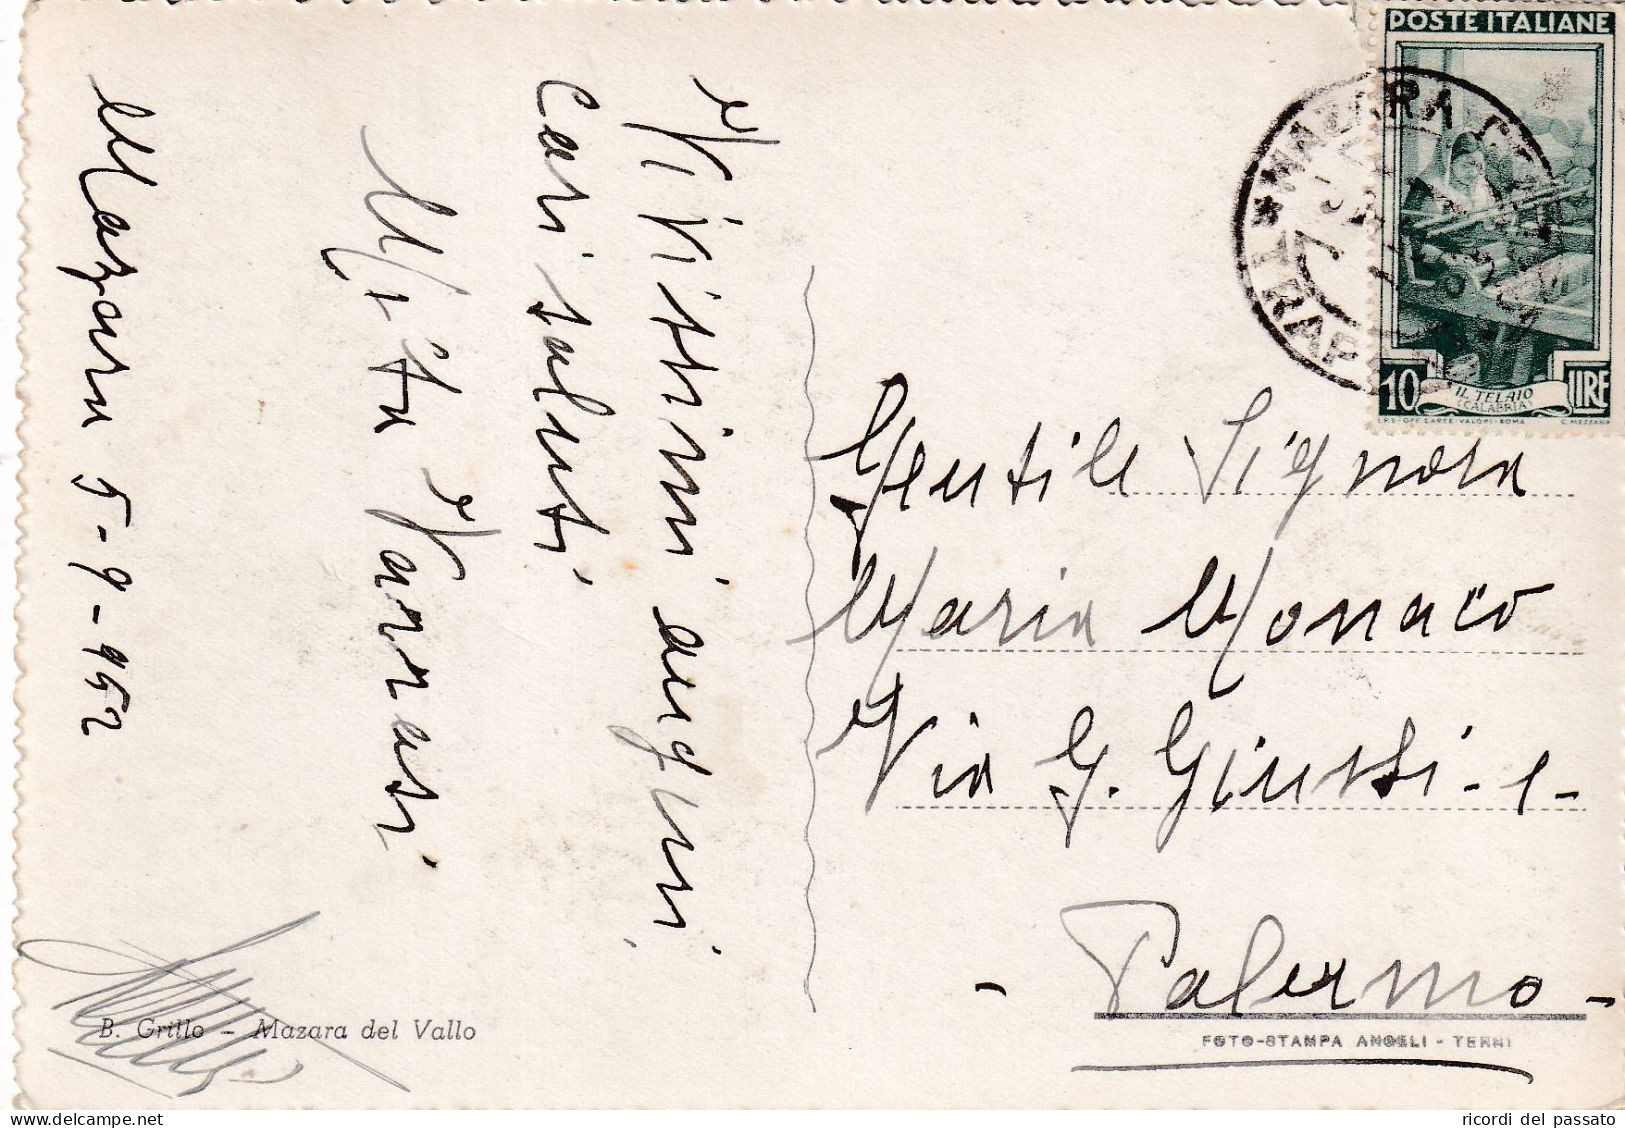 Mazara 5-9-952
Vivissimi auguri
Cari saluti
Vita Varvasi
B. Grillo - Mazara del Vallo
POSTE ITALIANE
10 LIRE
IL TELAIO
(CALABRIA)
I.P.S-OFF. CARTE-VALORI-ROMA C. MEZZANA
MAZARA
TRAP
Gentile Signora
Maria Monaco
Via G. Giusti - 1 -
- Palermo -
FOTO-STAMPA ANGELI - TERNI
ricordi del passato